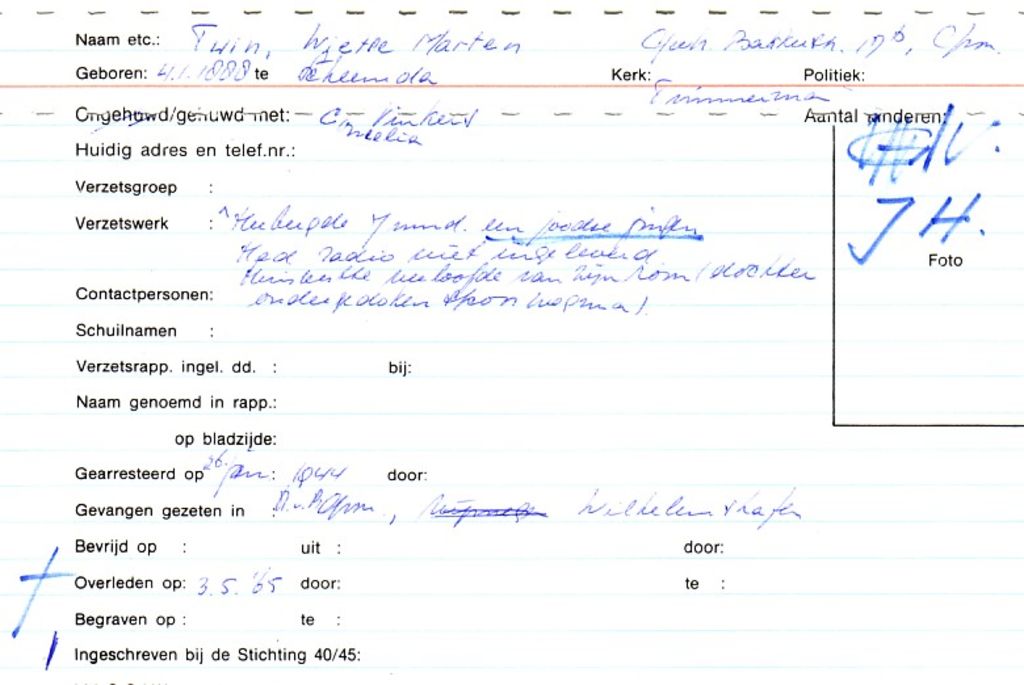 Naam etc.: Twin, Wietse Marten
Geboren: 4.1.1888 te Scheemda Kerk: Politiek:
Timmerman
Ongehuwd/gehuwd met: Cornelia Aantal kinderen:
Huidig adres en telef.nr.:
Verzetsgroep :
Verzetswerk : Herbergde 7 mnd. een joodse jongen
J H.
Had radio niet ingeleverd
Foto
van zijn zoon (dochter
Contactpersonen: ondergedoken
Schuilnamen :
Verzetsrapp. ingel. dd. : bij:
Naam genoemd in rapp.:
op bladzijde:
Gearresteerd op 26 jan: 1944 door:
Gevangen gezeten in : H.v.B. Gron., Wilhelmshafen
Bevrijd op : uit : door:
Overleden op: 3.5.'65 door: te :
Begraven op : te :
Ingeschreven bij de Stichting 40/45: